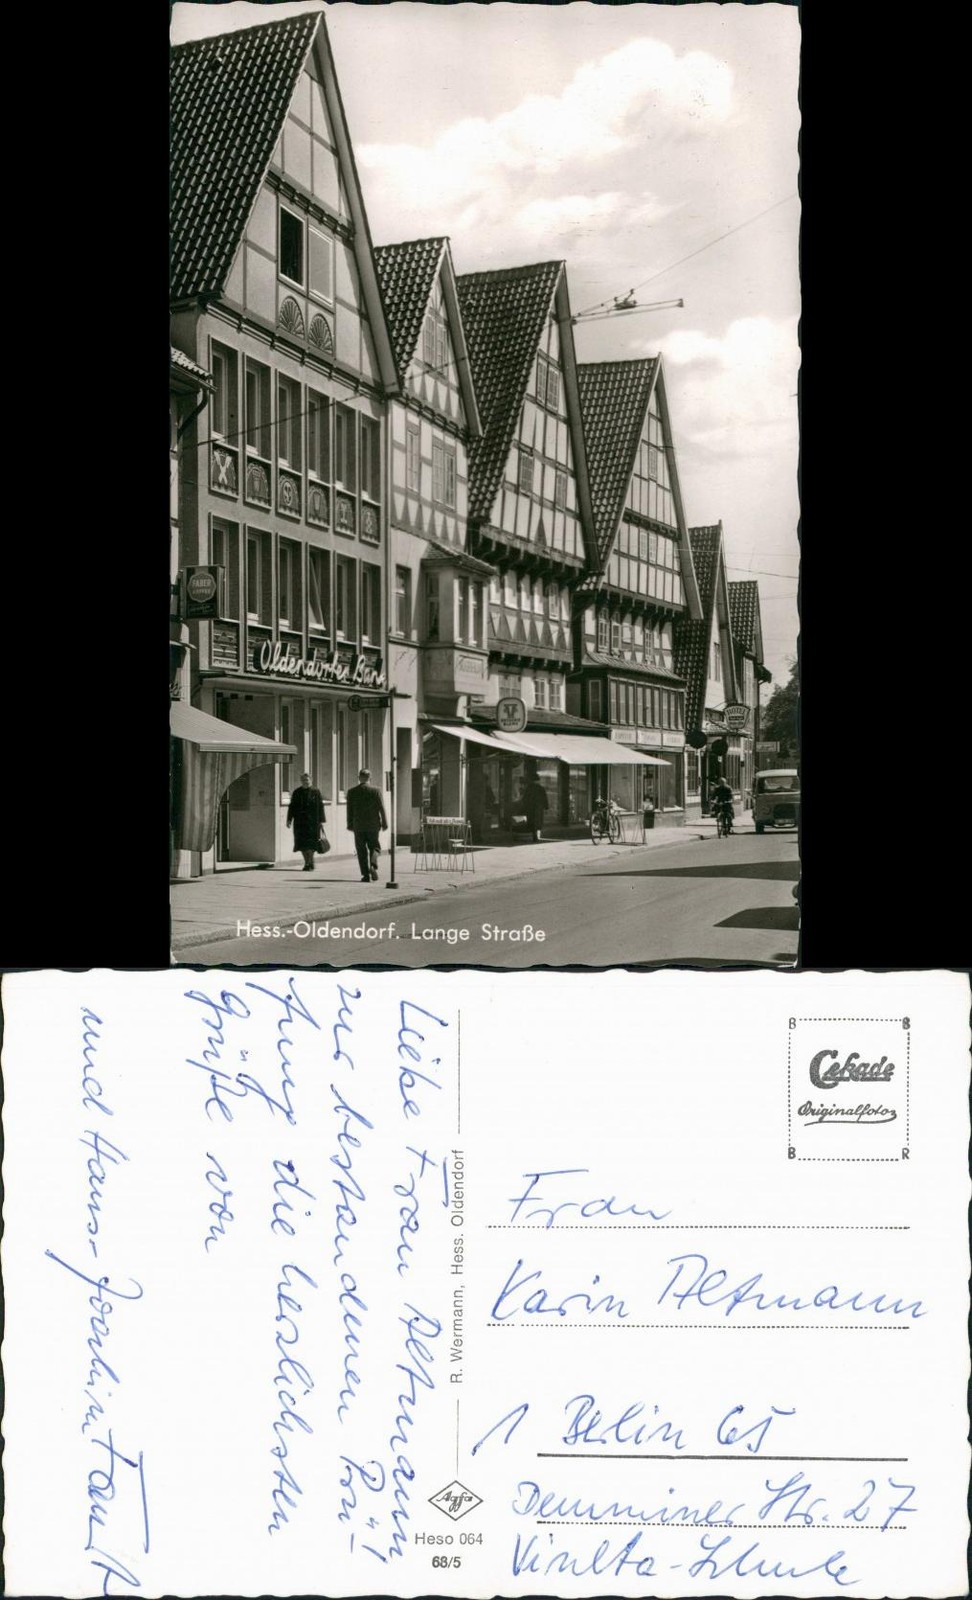 FABER
Oldendorfer Bank
HOTEL
Hess.-Oldendorf. Lange Straße
Liebe Frau Altmann!
zur bestandenen Prü-
fung die herzlichsten
Grüße von
und Hans-Joachim Faust
R. Wermann, Hess. Oldendorf
Agfa
Heso 064
68/5
B B
Cekade
Originalfoto
B R
Frau
Karin Altmann
1 Berlin 65
Demminer Str. 27
Vineta-Schule